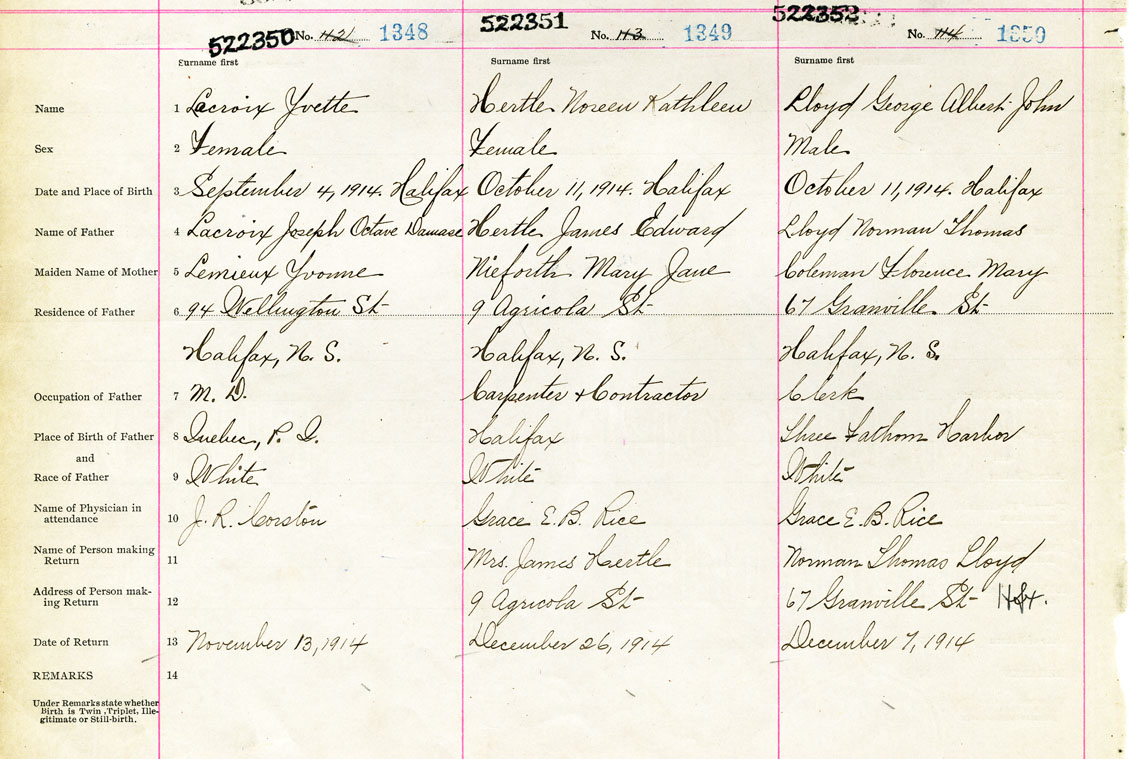 522350 No. 112 1348 522351 No. 113 1349 522352 No. 114 1350
Surname first Surname first Surname first
Name 1 Lacroix Yvette Hertle Noreen Kathleen Lloyd George Albert John
Sex 2 Female Female Male
Date and Place of Birth 3 September 4, 1914. Halifax October 11, 1914. Halifax October 11, 1914. Halifax
Name of Father 4 Lacroix Joseph Octave Damase Hertle James Edward Lloyd Norman Thomas
Maiden Name of Mother 5 Lemieux Yvonne Nieforth Mary Jane Coleman Florence Mary
Residence of Father 6 94 Wellington St 9 Agricola St 67 Granville St
Halifax, N. S. Halifax, N. S. Halifax, N. S.
Occupation of Father 7 M. D. Carpenter + Contractor Clerk
Place of Birth of Father 8 Quebec, P. Q. Halifax Three Fathom Harbor
and
Race of Father 9 White White White
Name of Physician in
attendance 10 J. R. Corston Grace E. B. Rice Grace E. B. Rice
Name of Person making
Return 11 Mrs. James Hertle Norman Thomas Lloyd
Address of Person mak-
ing Return 12 9 Agricola St 67 Granville St Hfx.
Date of Return 13 November 13, 1914 December 26, 1914 December 7, 1914
REMARKS 14
Under Remarks state whether
Birth is Twin, Triplet, Ille-
gitimate or Still-birth.